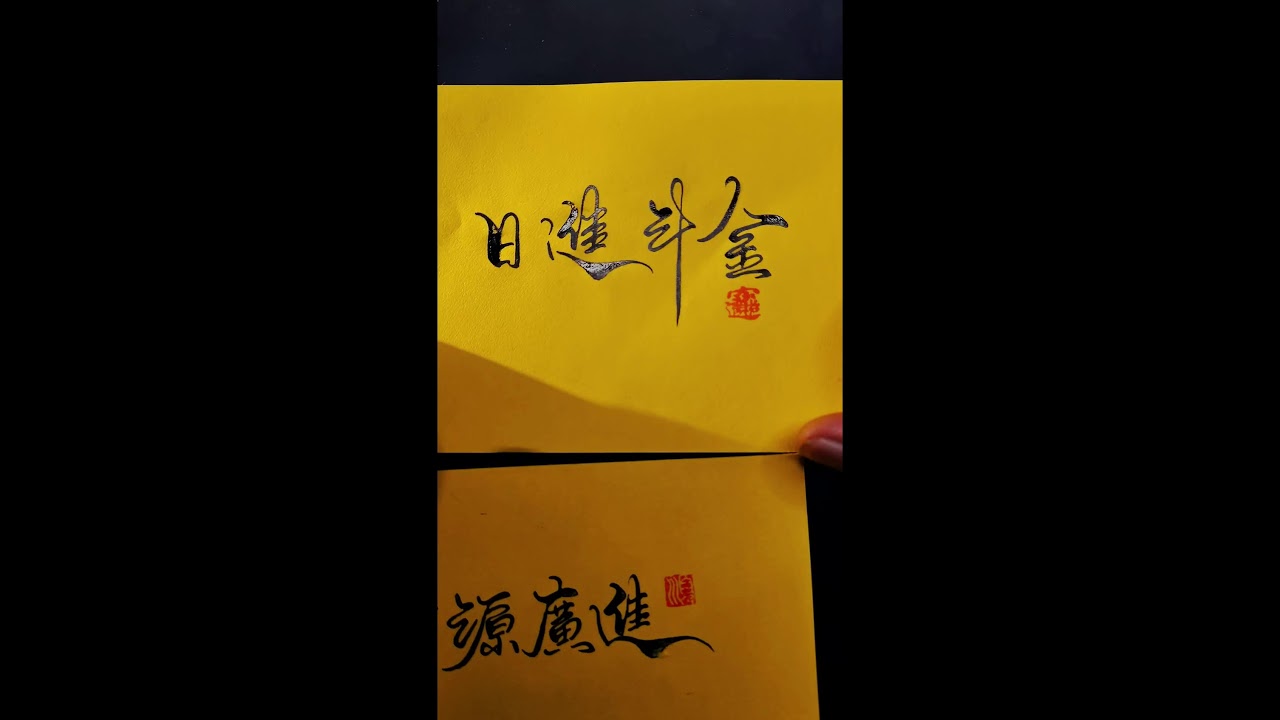 日進斗金
源廣進